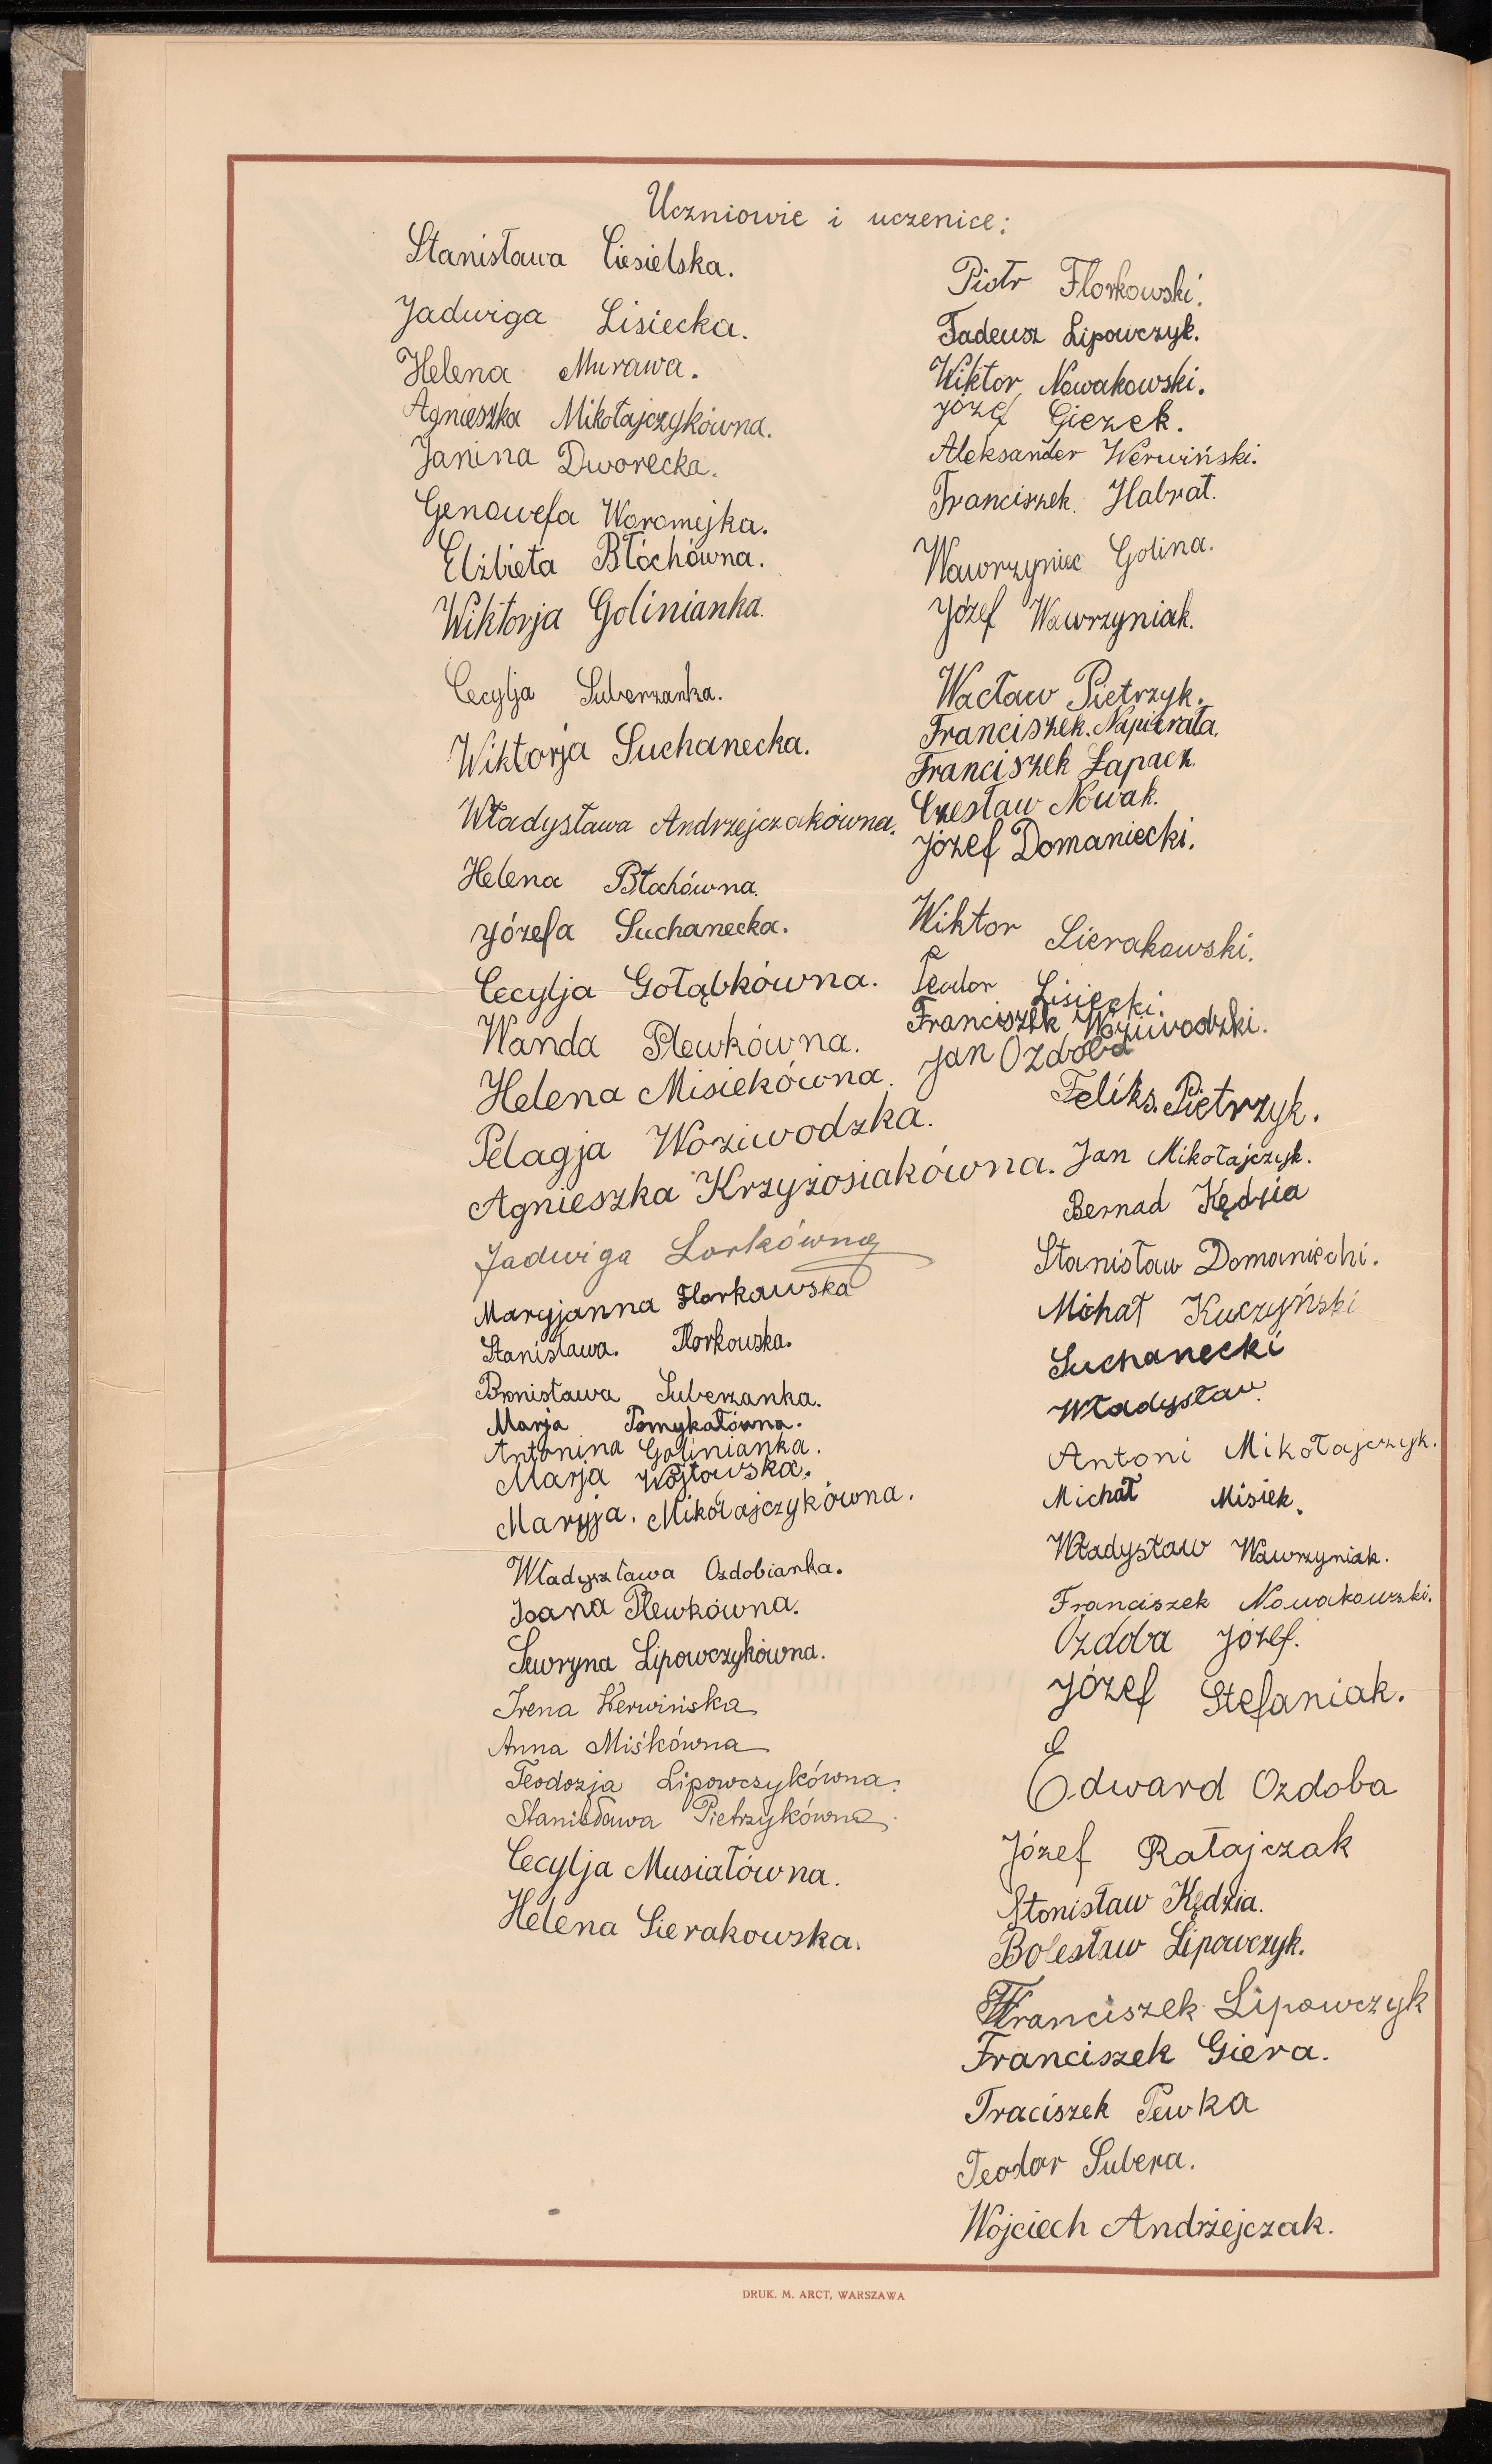 Uczniowie i uczenice:
Stanisława Ciesielska.
Jadwiga Lisiecka.
Helena Murawa.
Agnieszka Mikołajczykówna.
Janina Dworecka.
Genowefa Woromejka.
Elżbieta Błochówna.
Wiktorja Golinianka.
Cecylja Suberzanka.
Wiktorja Suchanecka.
Władysława Andrzejczakówna.
Helena Błochówna.
Józefa Suchanecka.
Cecylja Gołąbkówna.
Wanda Plewkówna.
Helena Misiekówna.
Pelagja Woziwodzka.
Agnieszka Krzyżosiakówna.
Jadwiga Lorkówna
Maryjanna Florkowska
Stanisława. Florkowska.
Bronisława Suberzanka.
Marja Pomykałówna.
Antonina Golinianka.
Marja Wojtowska.
Maryja. Mikołajczykówna.
Władyszława Ozdobianka.
Joana Plewkówna.
Sewryna Lipowczykówna.
Irena Werwińska
Anna Miśkówna
Teodozja Lipowczykówna.
Stanisława Pietrzykówna.
Cecylja Musiałówna.
Helena Sierakowska.
Piotr Florkowski.
Tadeusz Lipowczyk.
Wiktor Nowakowski.
Józef Giezek.
Aleksander Werwiński.
Franciszek Habrat.
Wawrzyniec Golina.
Józef Wawrzyniak.
Wacław Pietrzyk.
Franciszek. Napierała.
Franciszek Łapacz.
Czesław Nowak.
Józef Domaniecki.
Wiktor Sierakowski.
Teodor Lisiecki.
Franciszek Woziwodzki.
Jan Ozdoba
Feliks. Pietrzyk.
Jan Mikołajczyk.
Bernad Kędzia
Stanisław Domaniechi.
Michał Kuczyński
Suchanecki
Władysław.
Antoni Mikołajczyk.
Michał Misiek.
Władysław Wawrzyniak.
Franciszek Nowakowski.
Ozdoba Józef.
Józef Stefaniak.
E
Edward Ozdoba
Józef Ratajczak
Stonisław Kędzia.
Bolesław Lipowczyk.
Franciszek Lipowczyk
Franciszek Giera.
Fraciszek Pewka
Teodor Subera.
Wojciech Andrzejczak.
DRUK. M. ARCT, WARSZAWA